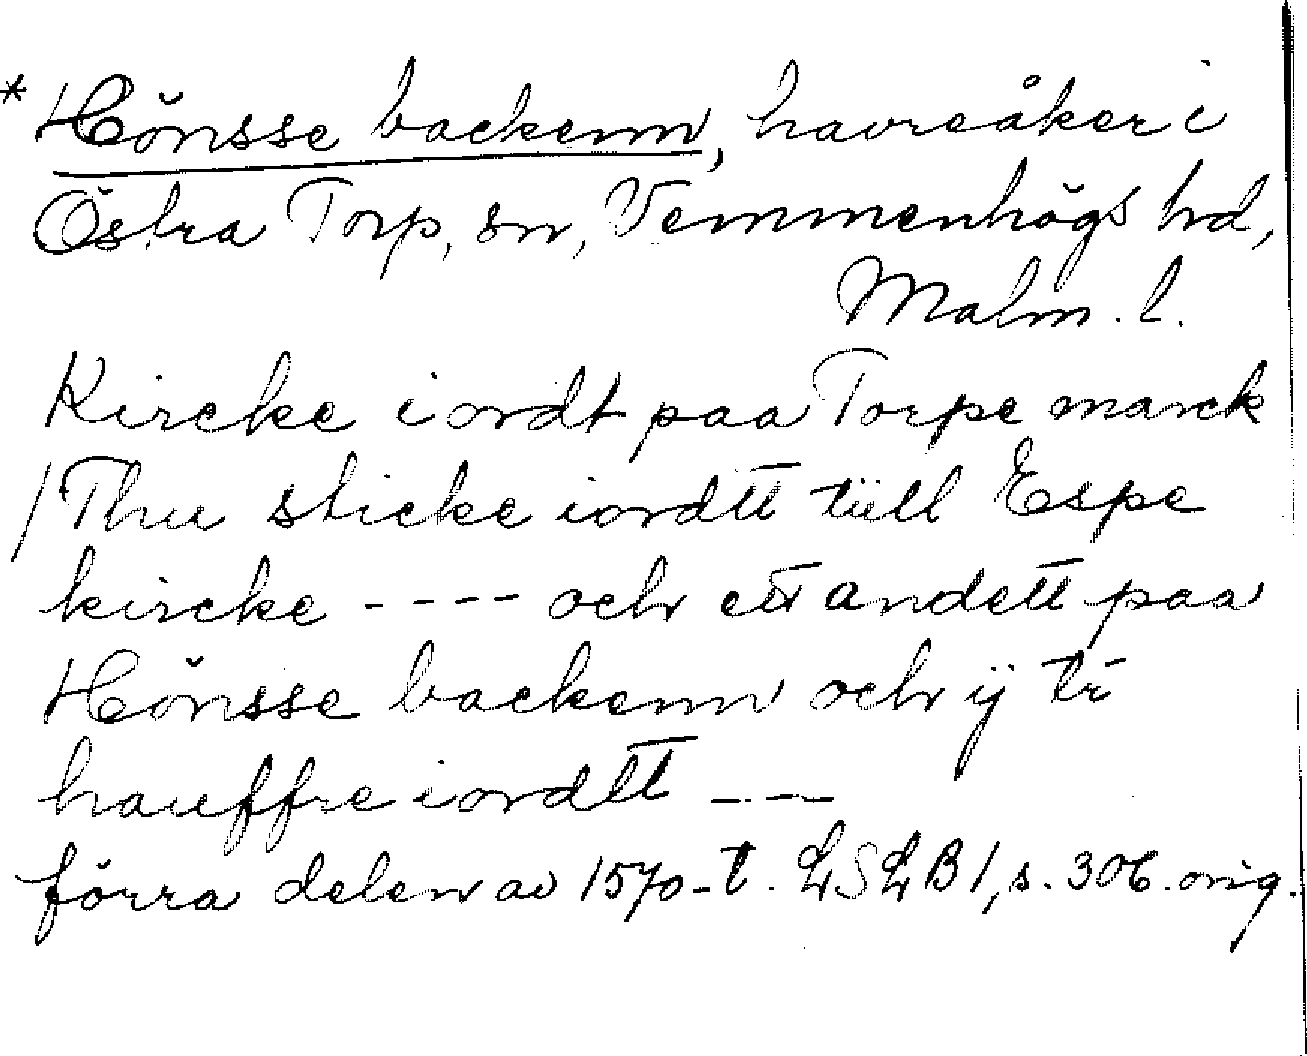 * Hönsse backenn, havreåker i
Östra Torp, sn, Vemmenhögs hd,
Malm. l.
Kircke iordt paa Torpe marck
/Thu sticke iordtt tiill Espe
kircke ---- och ett andett paa
Hönsse backenn och ij tr
hauffre iordtt ---
förra delen av 1570-t. LSLB 1, s. 306. orig.